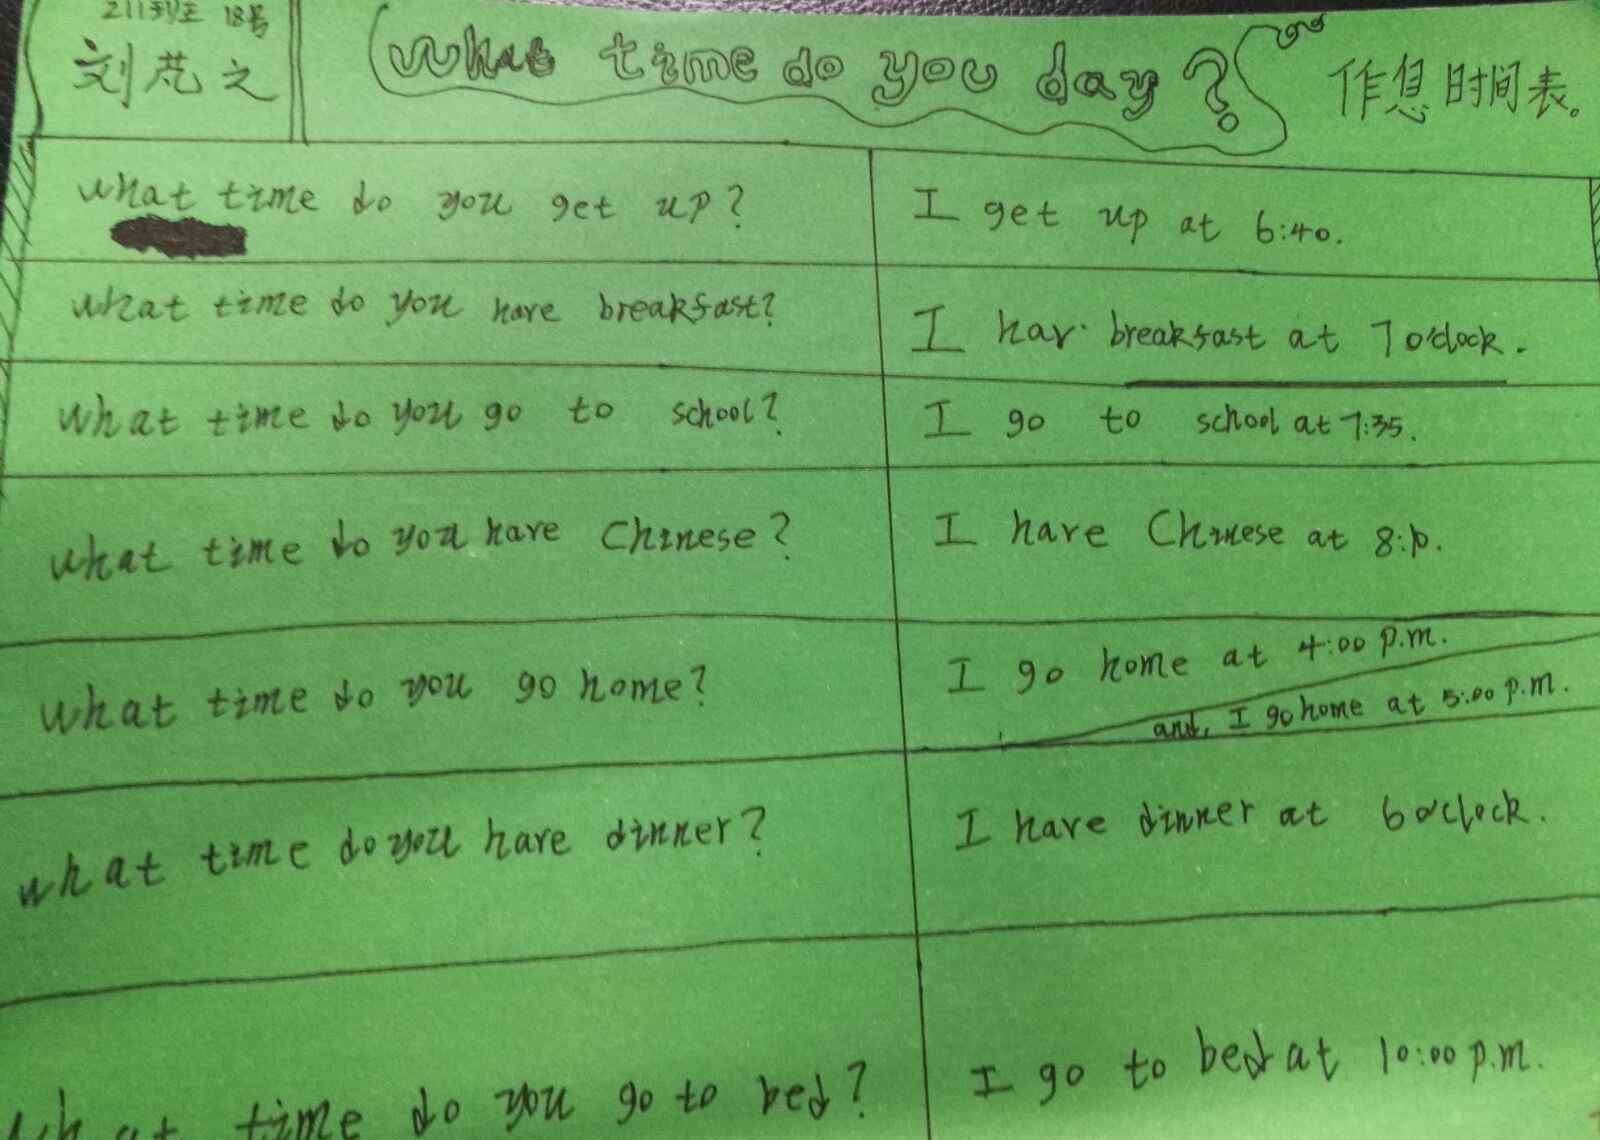 211班 18号
刘芘之
What time do you day?
作息时间表。
what time do you get up?
I get up at 6:40.
what time do you have breakfast?
I hav breakfast at 7 o'clock.
what time do you go to school?
I go to school at 7:35.
what time do you have Chinese?
I have Chinese at 8:10.
what time do you go home?
I go home at 4:00 p.m.
and, I go home at 5:00 p.m.
what time do you have dinner?
I have dinner at 6 o'clock.
what time do you go to bed?
I go to bed at 10:00 p.m.